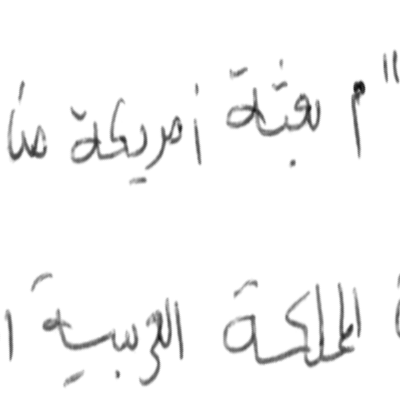 "م بعثة أمريكية منا
المملكة العربية ا